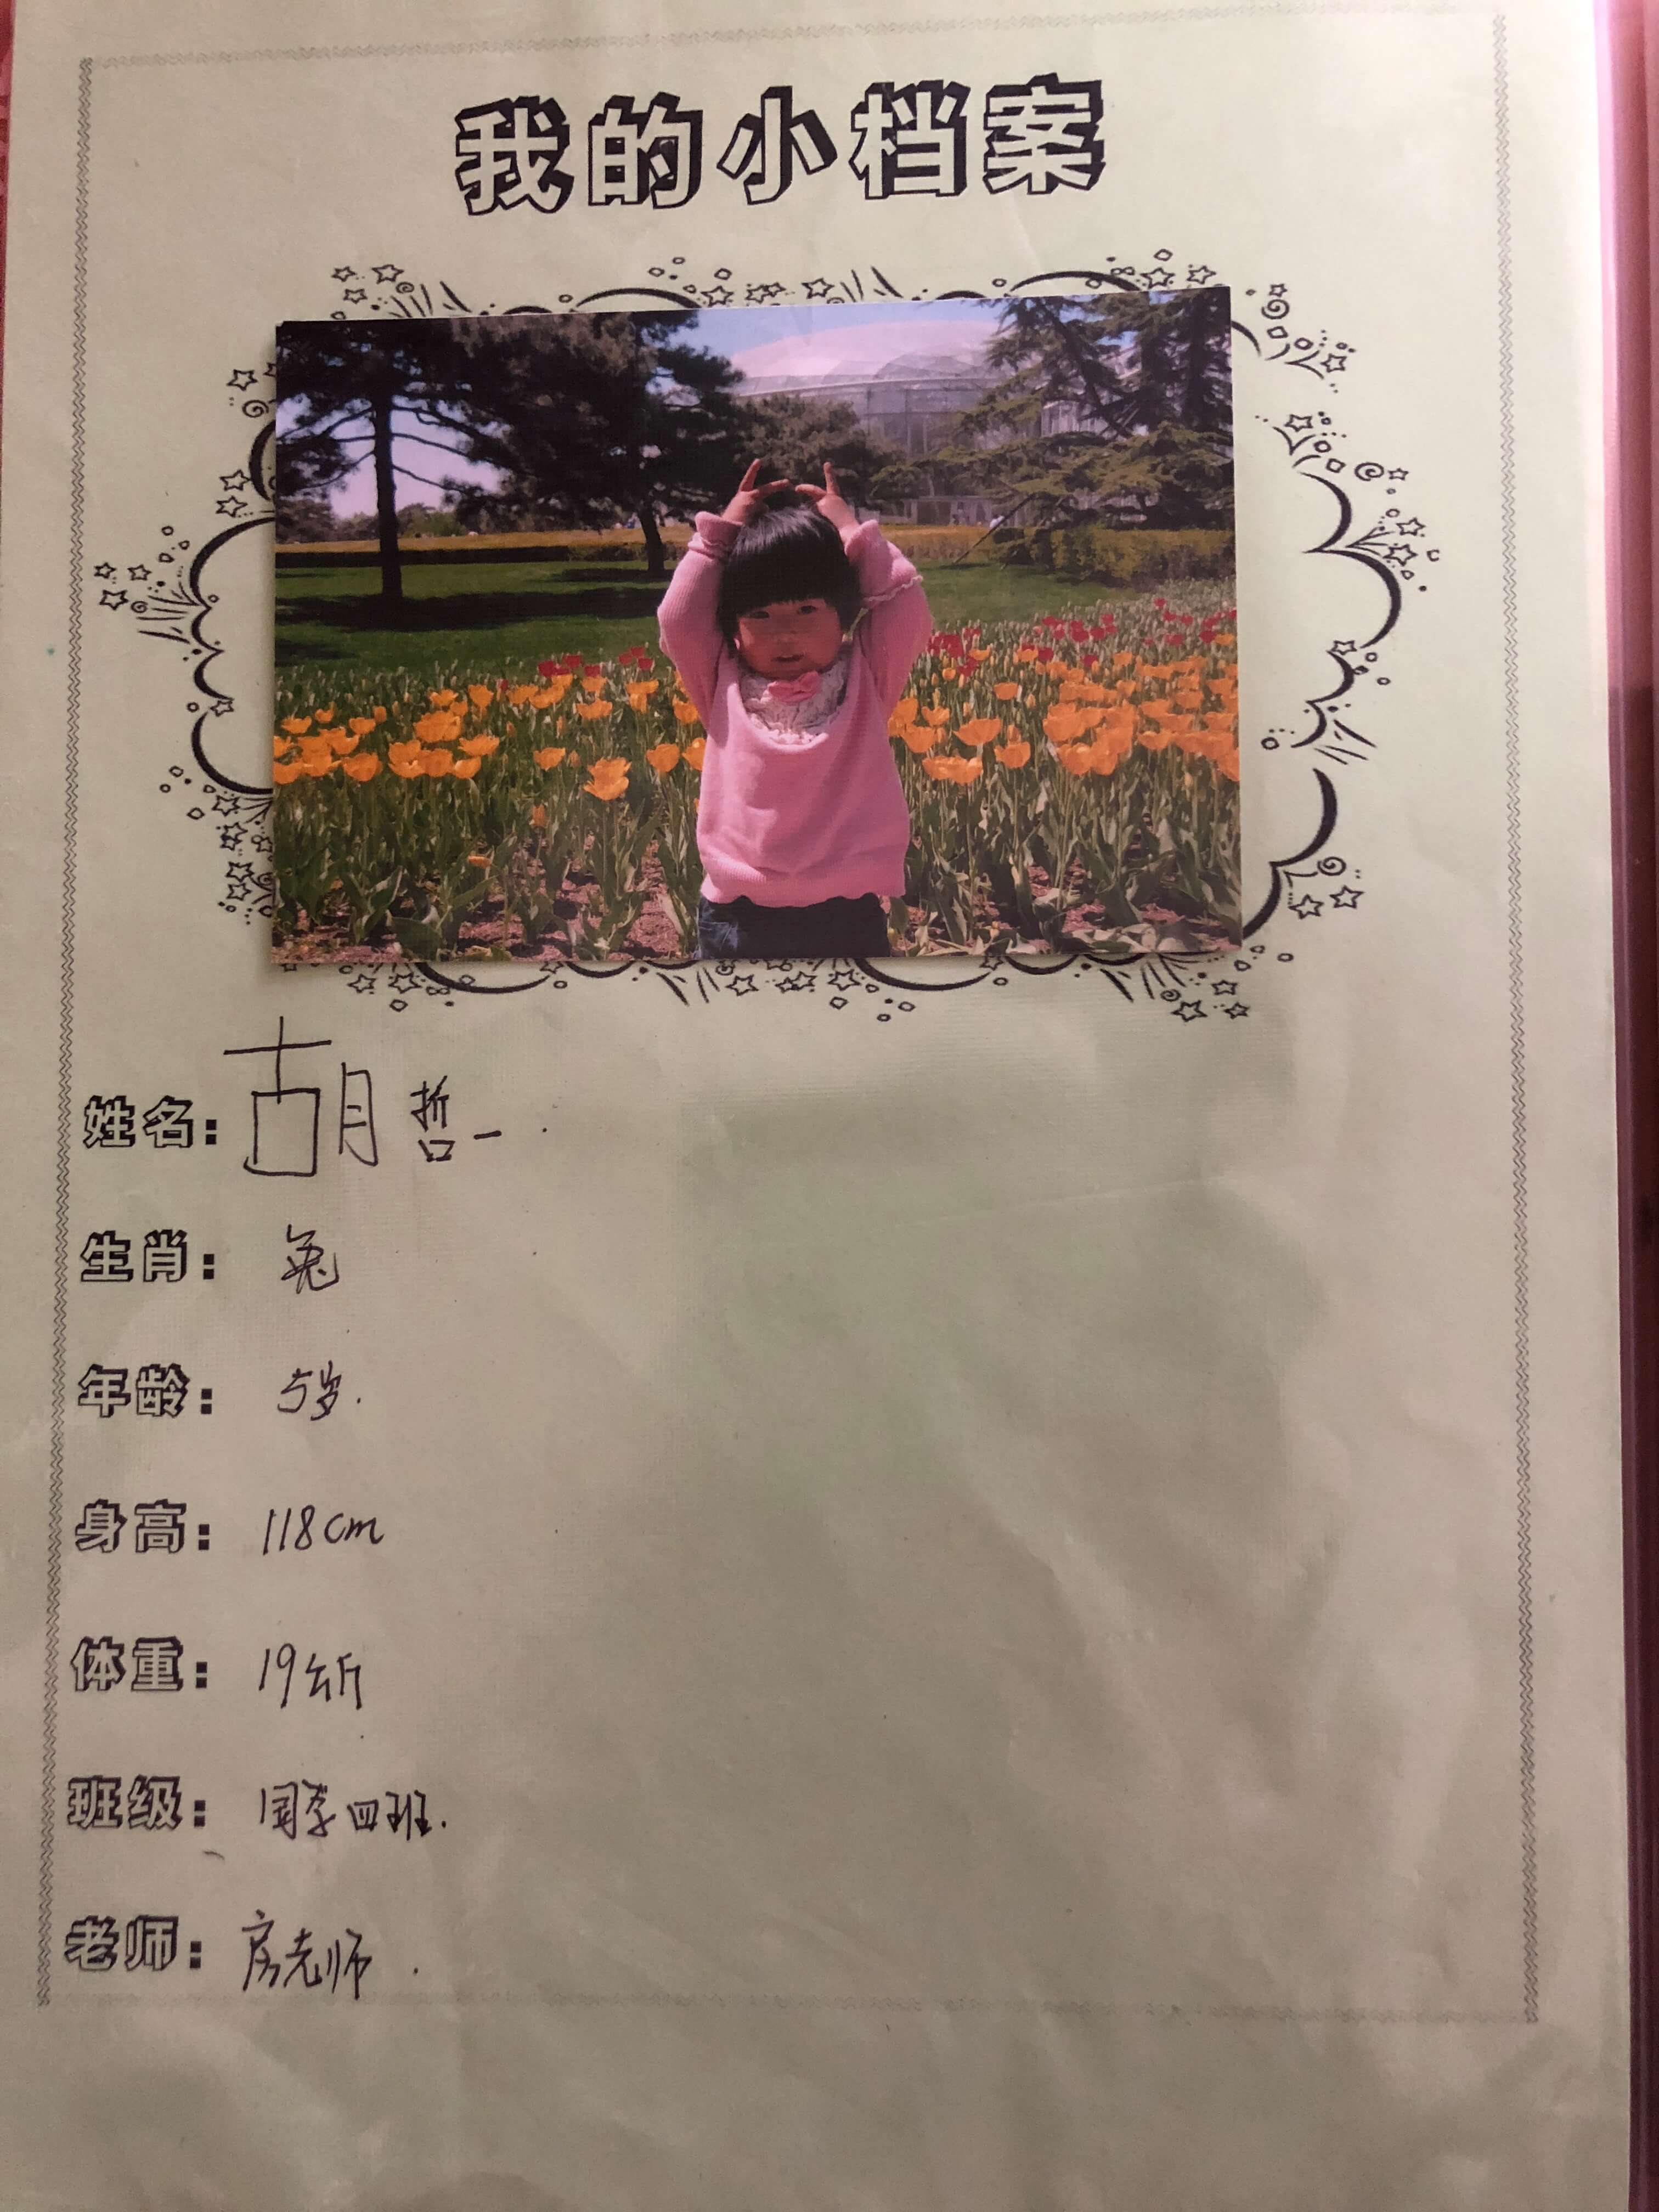 我的小档案
姓名：胡哲一.
生肖：兔
年龄：5岁.
身高：118cm
体重：19公斤
班级：国学四班.
老师：房老师.